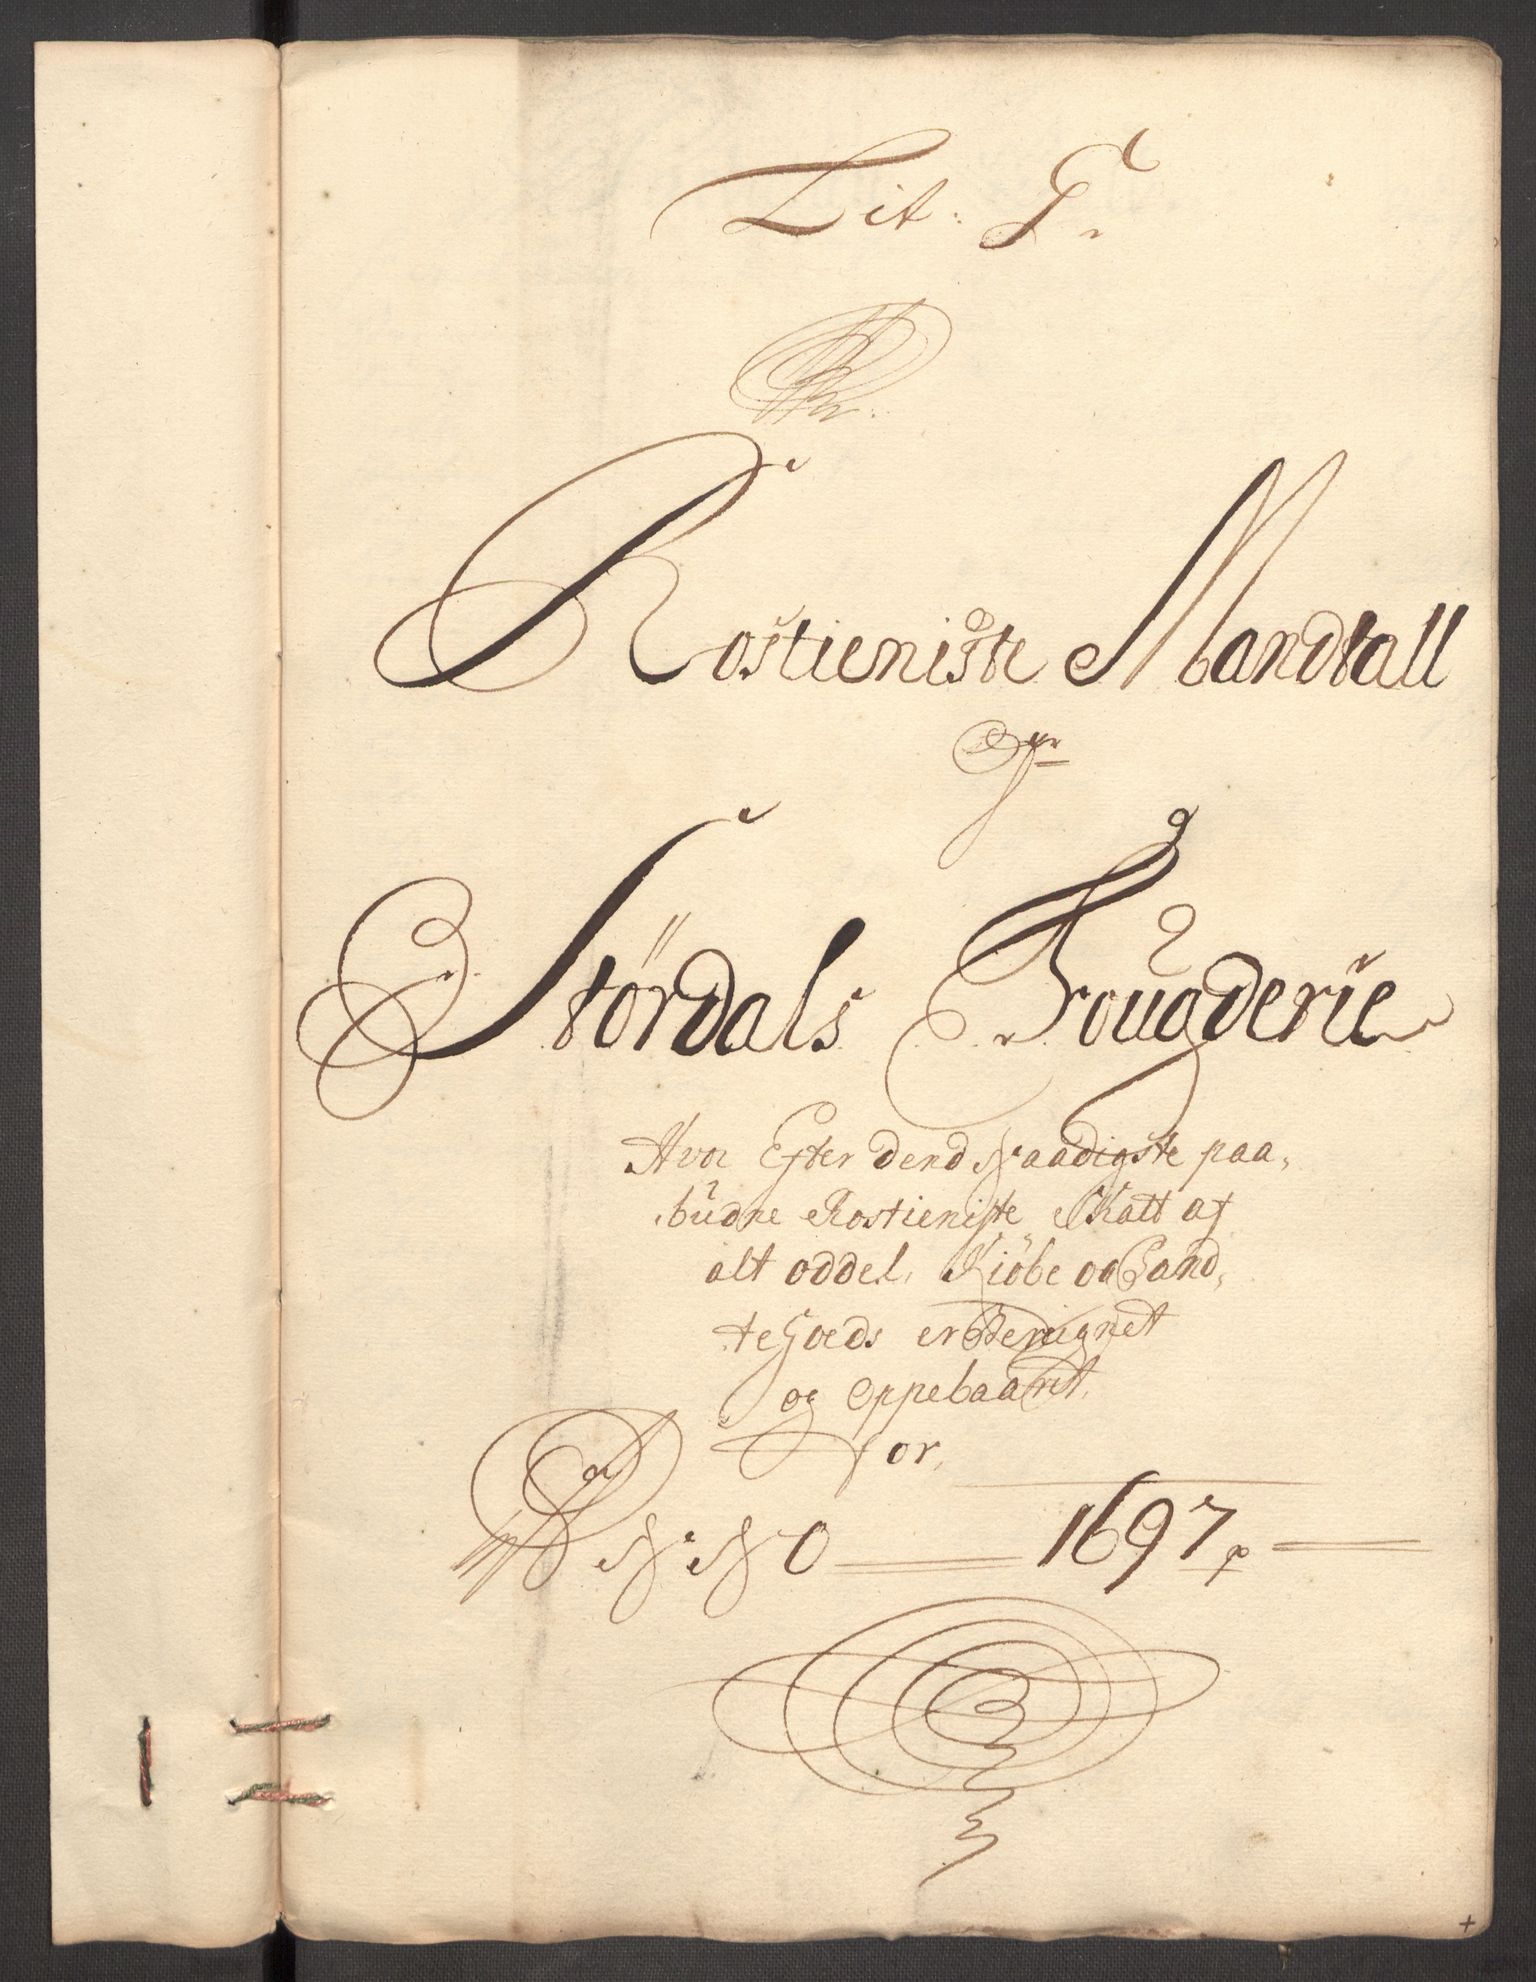 Lit. G.
Rostieniste Mandtall
Stördals Fougderie
Hvor Efter dend Naadigste paa,
büdne Rostieniste Skatt af
alt oddel, Kiöbe og Pand,
te Goeds er Bereignet
og Oppebaaret,
for,
NNO 1697